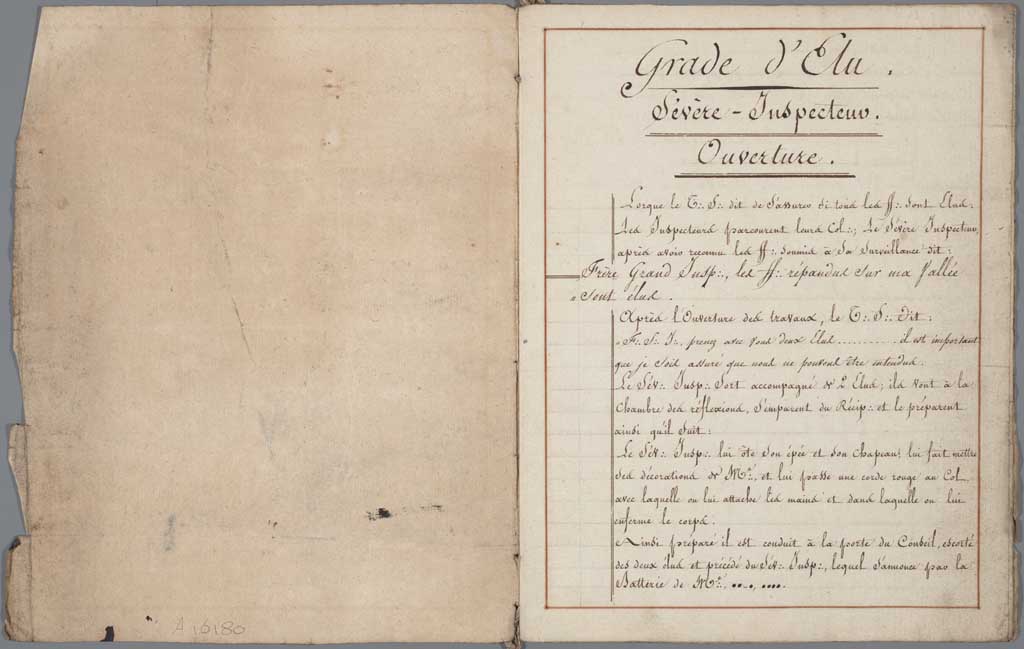 Grade d'Elu.
Sévère - Inspecteur.
Ouverture.
Lorque le T∴ S∴ dit de s'assurer si tous les ff∴ sont Elus;
Les Inspecteurs parcourent leurs Col∴; Le Sévère Inspecteur,
après avoir reconnu les ff∴ soumis à Sa Surveillance dit:
Frère Grand Insp∴, les ff∴ répandus sur ma Vallée
" sont élus.
Après l'Ouverture des travaux, le T∴ S∴ Dit:
" F∴ S∴ I∴, prenez avec vous deux Elus .......... il est important
que je sois assuré que nous ne pouvons être entendus.
Le Sév∴ Insp∴ Sort accompagné de 2 Elus; ils vont à la
Chambre des réflexions, S'emparent du Récip∴ et le préparent
ainsi qu'il Suit:
Le Sév∴ Insp∴ lui ôte son épée et son chapeau; lui fait mettre
ses décorations de M.e, et lui passe une corde rouge au Col,
avec laquelle on lui attache les mains et dans laquelle on lui
enferme le corps.
Ainsi préparé il est conduit à la porte du Conseil, escorté
des deux élus et précédé du Sév∴ Insp∴, lequel S'annonce par la
Batterie de M.e, ...., ....
A 16180